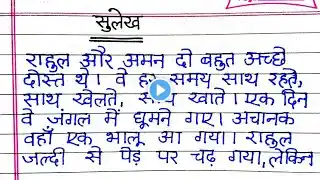 सुलेख
राहुल और अमन दो बहुत अच्छे
दोस्त थे। वे हर समय साथ रहते,
साथ खेलते, साथ खाते। एक दिन
वे जंगल में घूमने गए। अचानक
वहाँ एक भालू आ गया। राहुल
जल्दी से पेड़ पर चढ़ गया, लेकिन